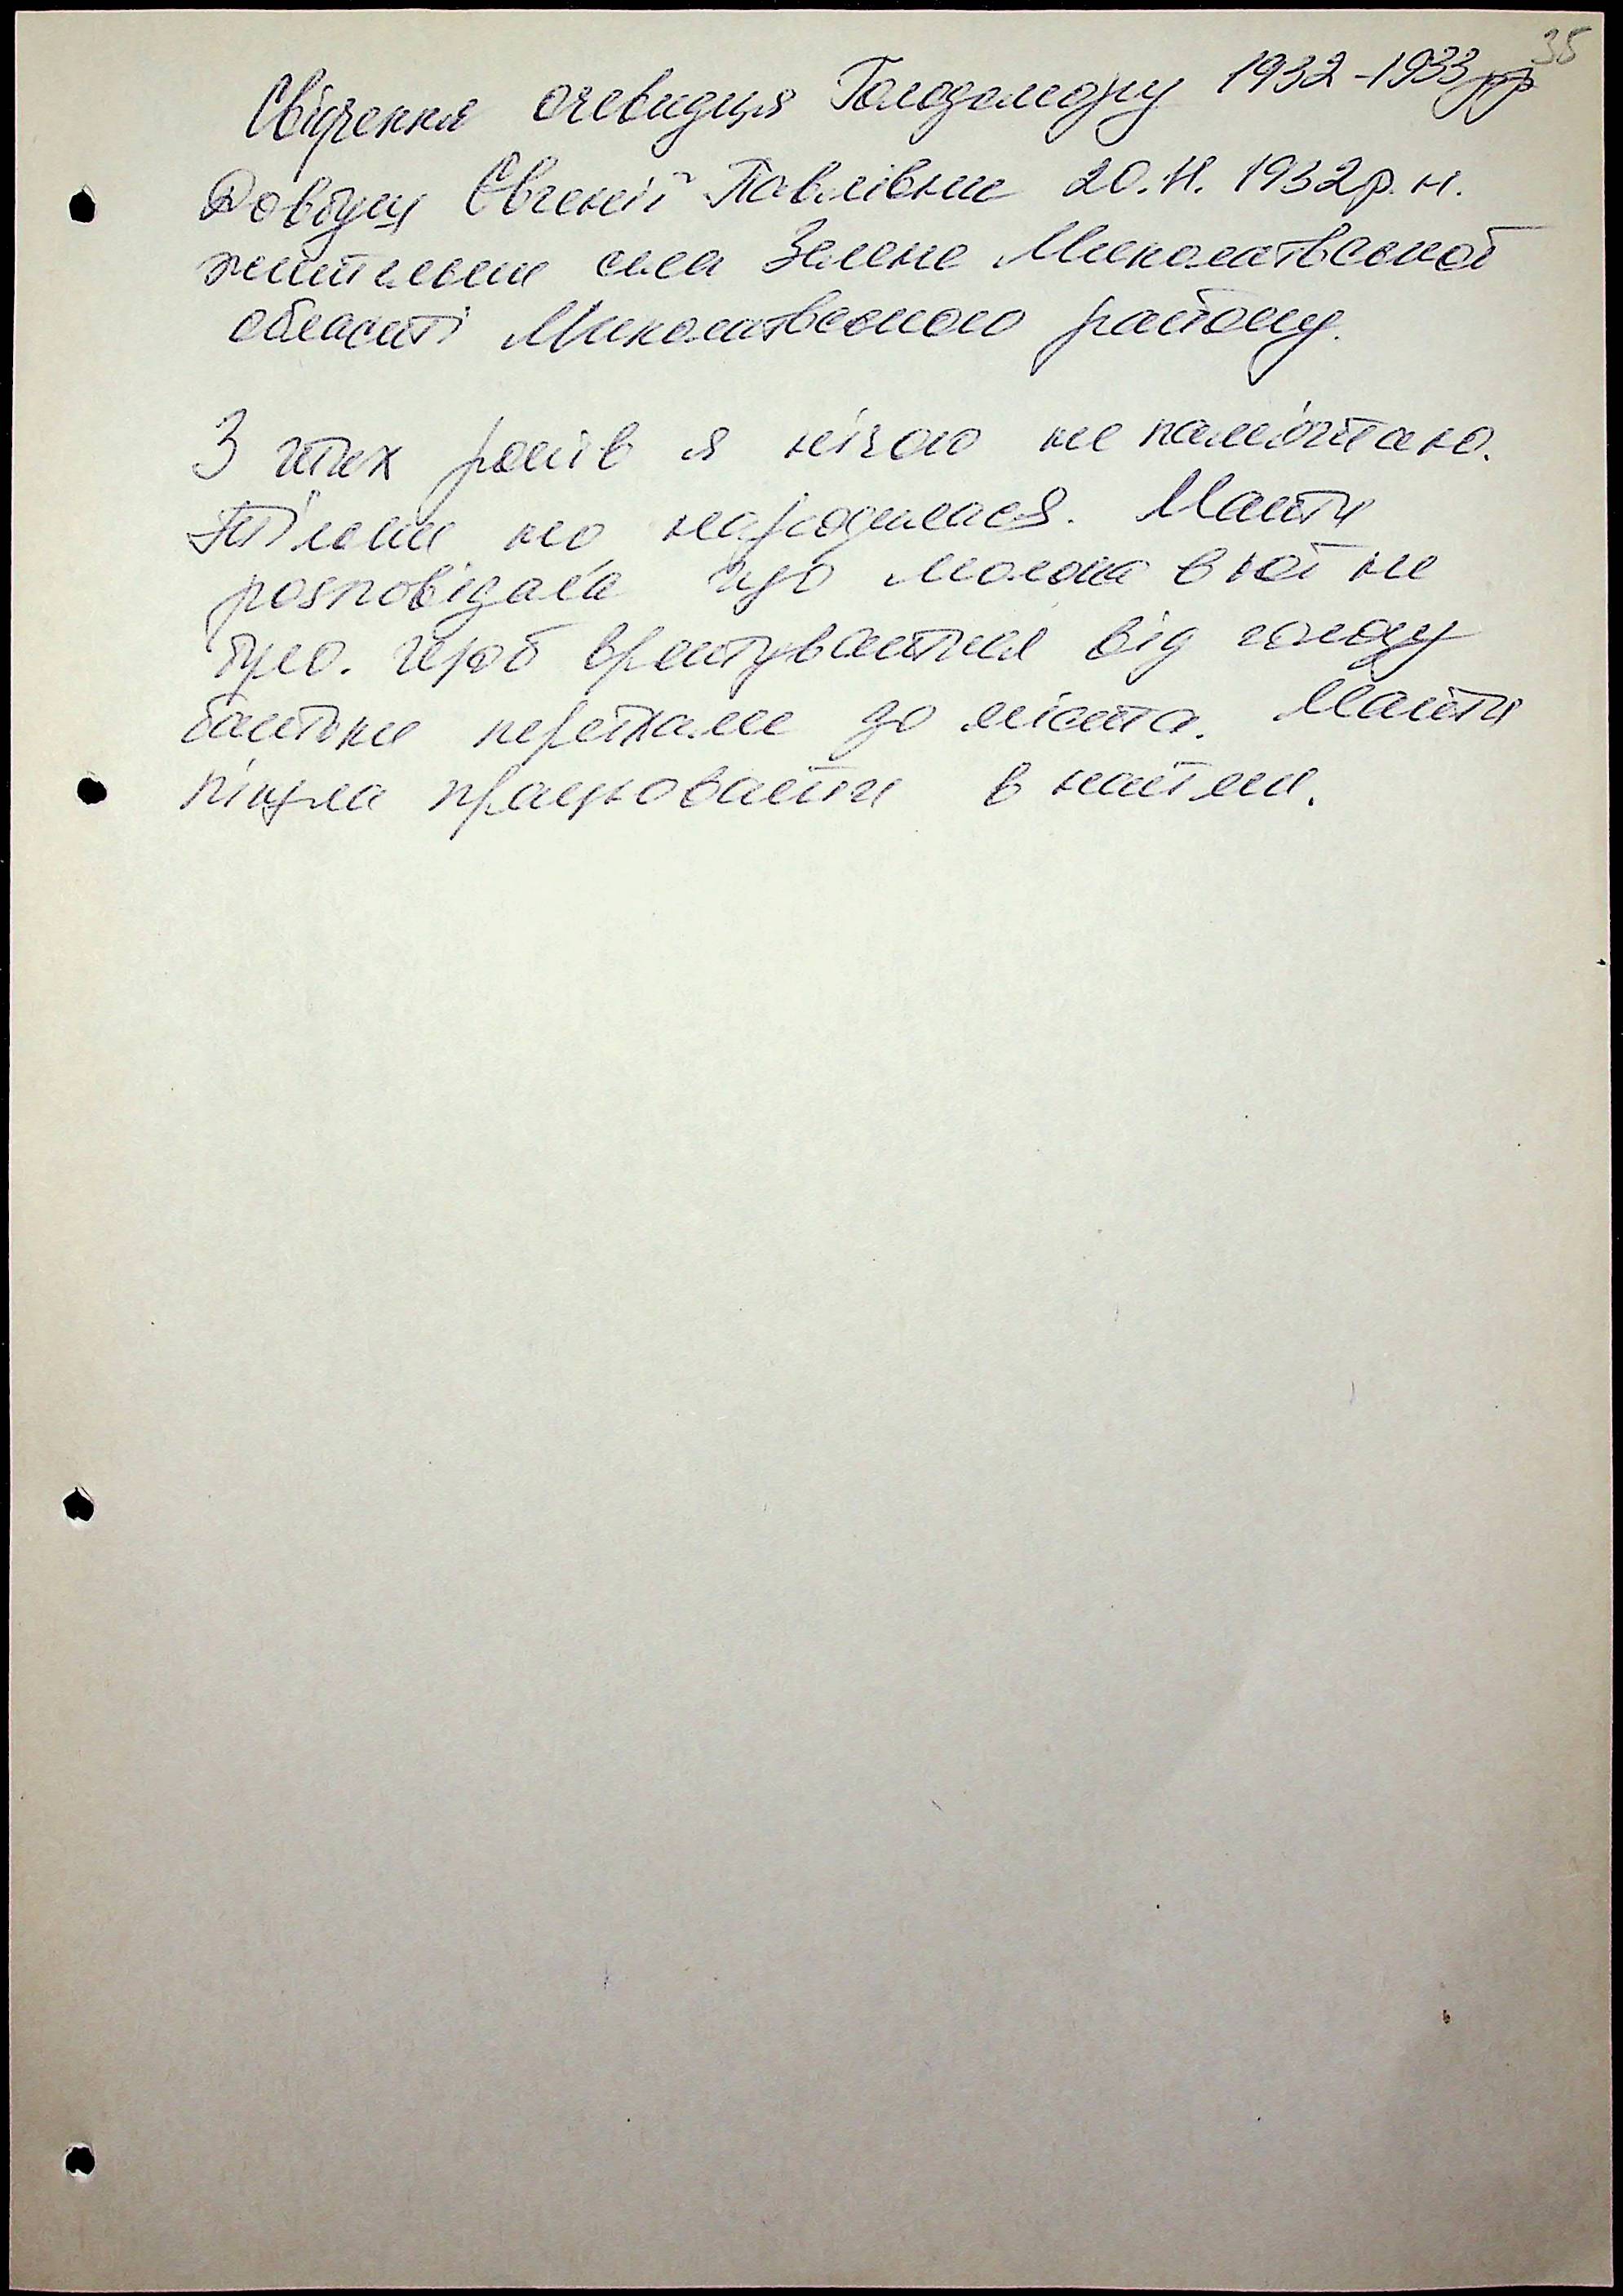 35
Свідчення очевидця Голодомору 1932-1933рр
Довбуш Євгенії Павлівни 20.11.1932р.н.
жительки села Зелене Миколаївської
області Миколаївського району.
З тих років я нічого не пам'ятаю.
Тільки но народилася. Мати
розповідала що молока в неї не
було. Щоб врятуватися від голоду
батьки переїхали до міста. Мати
пішла працювати в найми.